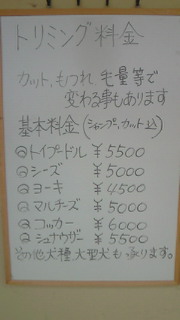 トリミング料金
カット、もつれ 毛量等で
変わる事もあります
基本料金(シャンプー、カット込)
トイプードル ¥5500
シーズ ¥5000
ヨーキ ¥4500
マルチーズ ¥5000
コッカー ¥6000
シュナウザー ¥5500
その他犬種、大型犬も承ります。